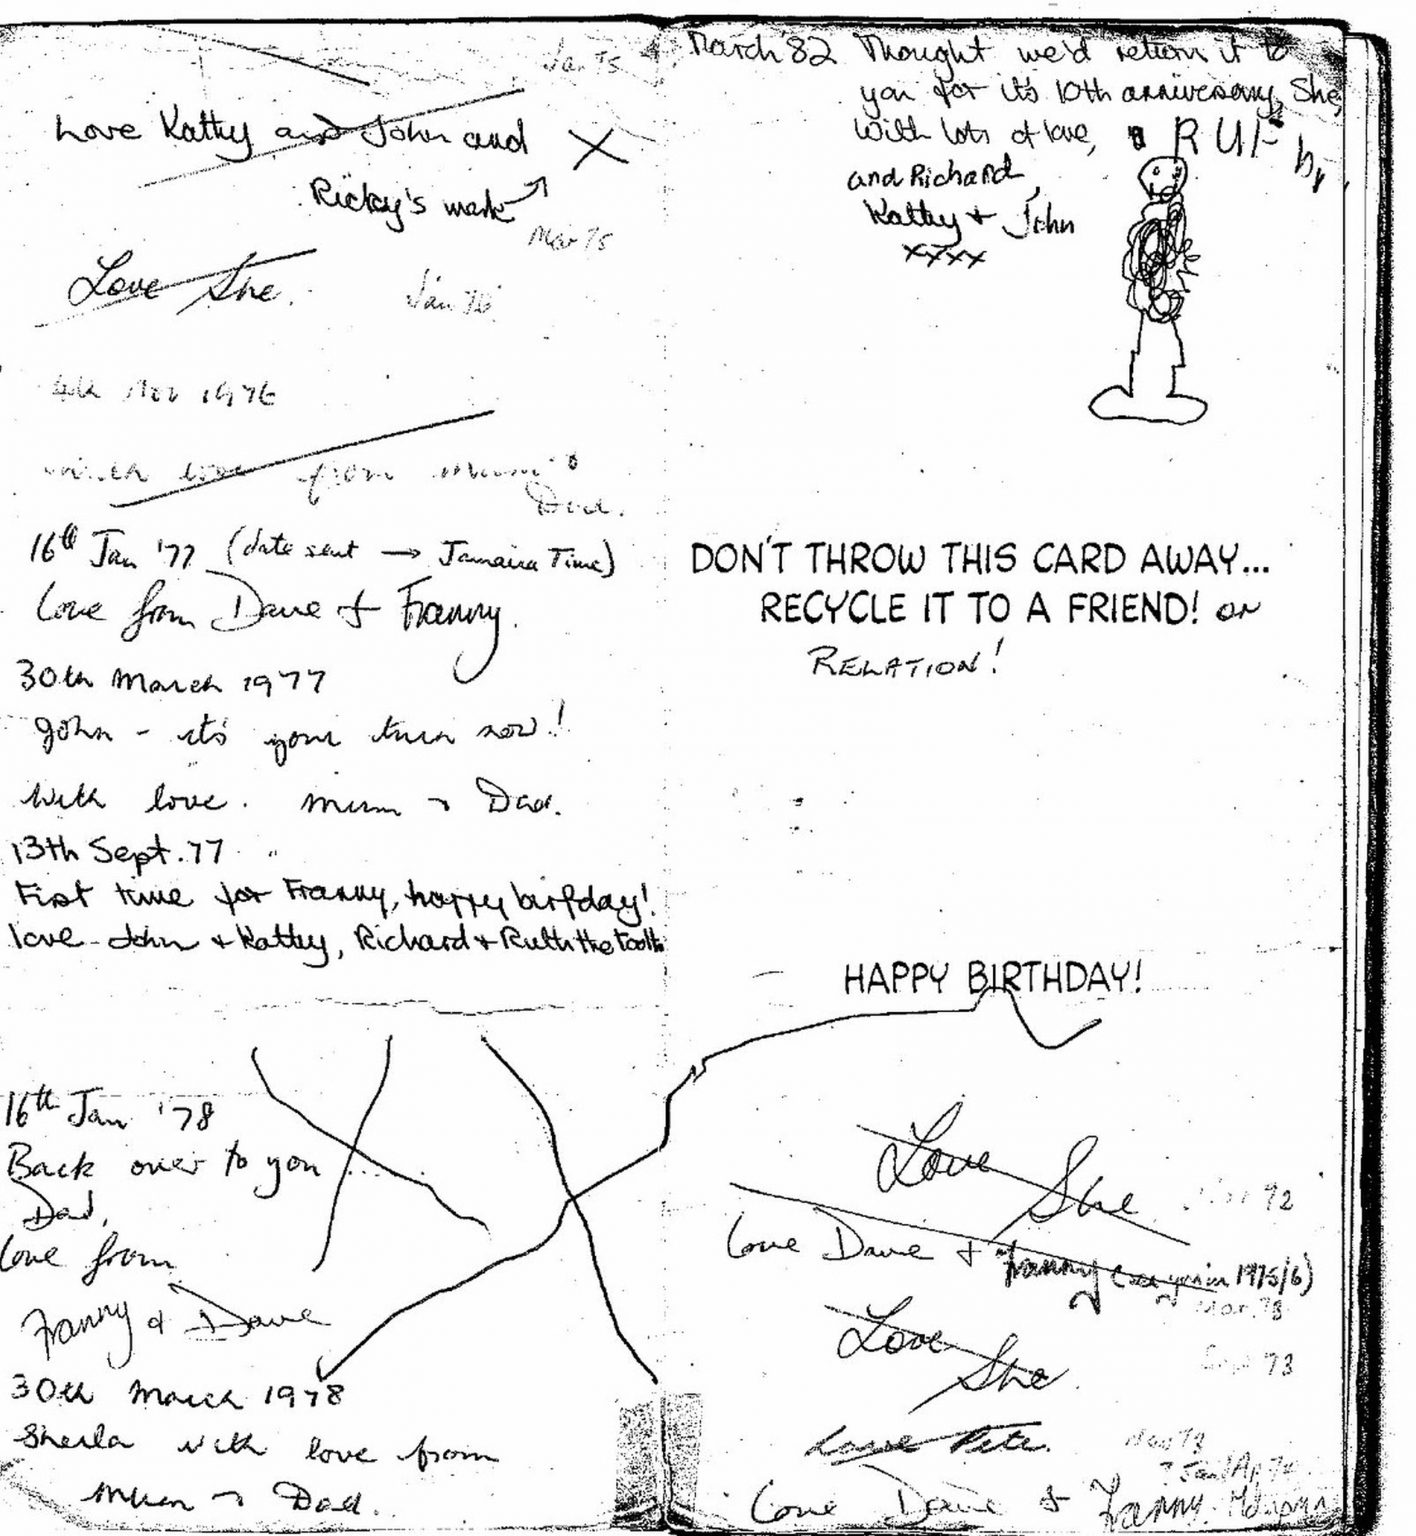 Jan 75
Love Kathy and John and X
Ricky's mark
Mar 75
Love She.
Jan 76
4th Nov 1976
with love from Mum &
Dad.
16th Jan '77 (date sent → Jamaica Time)
Love from Dave & Franny.
30th March 1977
John - it's your turn now!
With love. Mum & Dad.
13th Sept. 77
First time for Franny, happy birfday!
love John & Kathy, Richard & Ruth the
16th Jan '78
Back over to you ...
Dad,
Love from
Franny & Dave
30th March 1978
Sheila with love from
Mum & Dad.
March '82 Thought we'd return it to
you for it's 10th anniversary, She,
With lots of love,
and Richard,
Kathy + John
xxxx
DON'T THROW THIS CARD AWAY...
RECYCLE IT TO A FRIEND! OR
RELATION!
HAPPY BIRTHDAY!
Love She
72
Love Dave & Franny 1975/6)
Mar. 73
Love
She
Sept 73
Love Pete.
Love Dave & Franny.